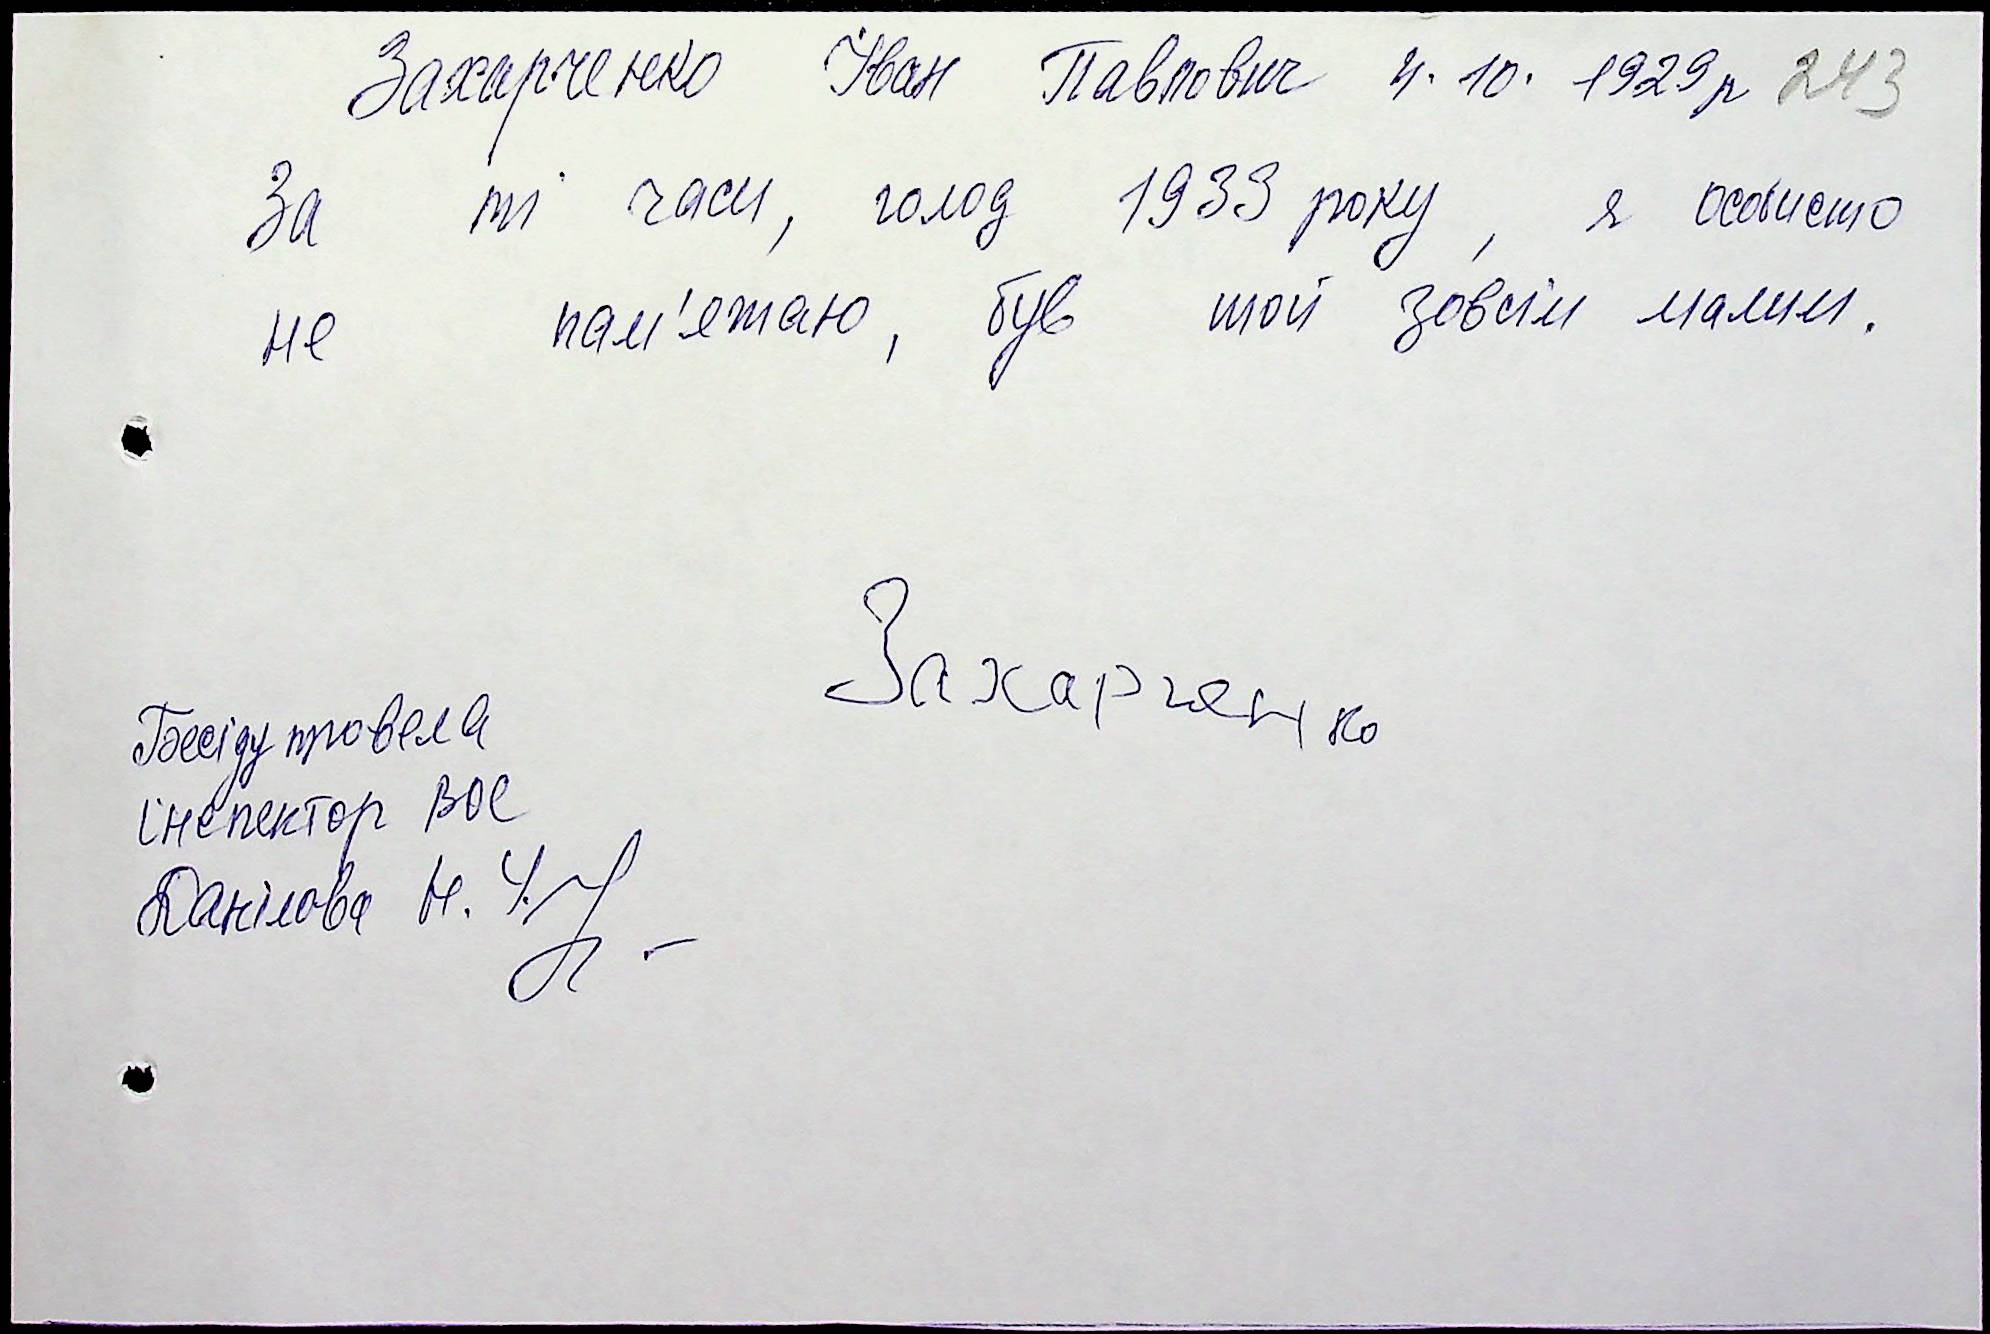 Захарченко Іван Павлович 4.10.1929р 243
За ті часи, голод 1933 року, я особисто
не пам'ятаю, був той зовсім малим.
Захарченко
Бесіду провела
інспектор ВОС
Данілова Н.